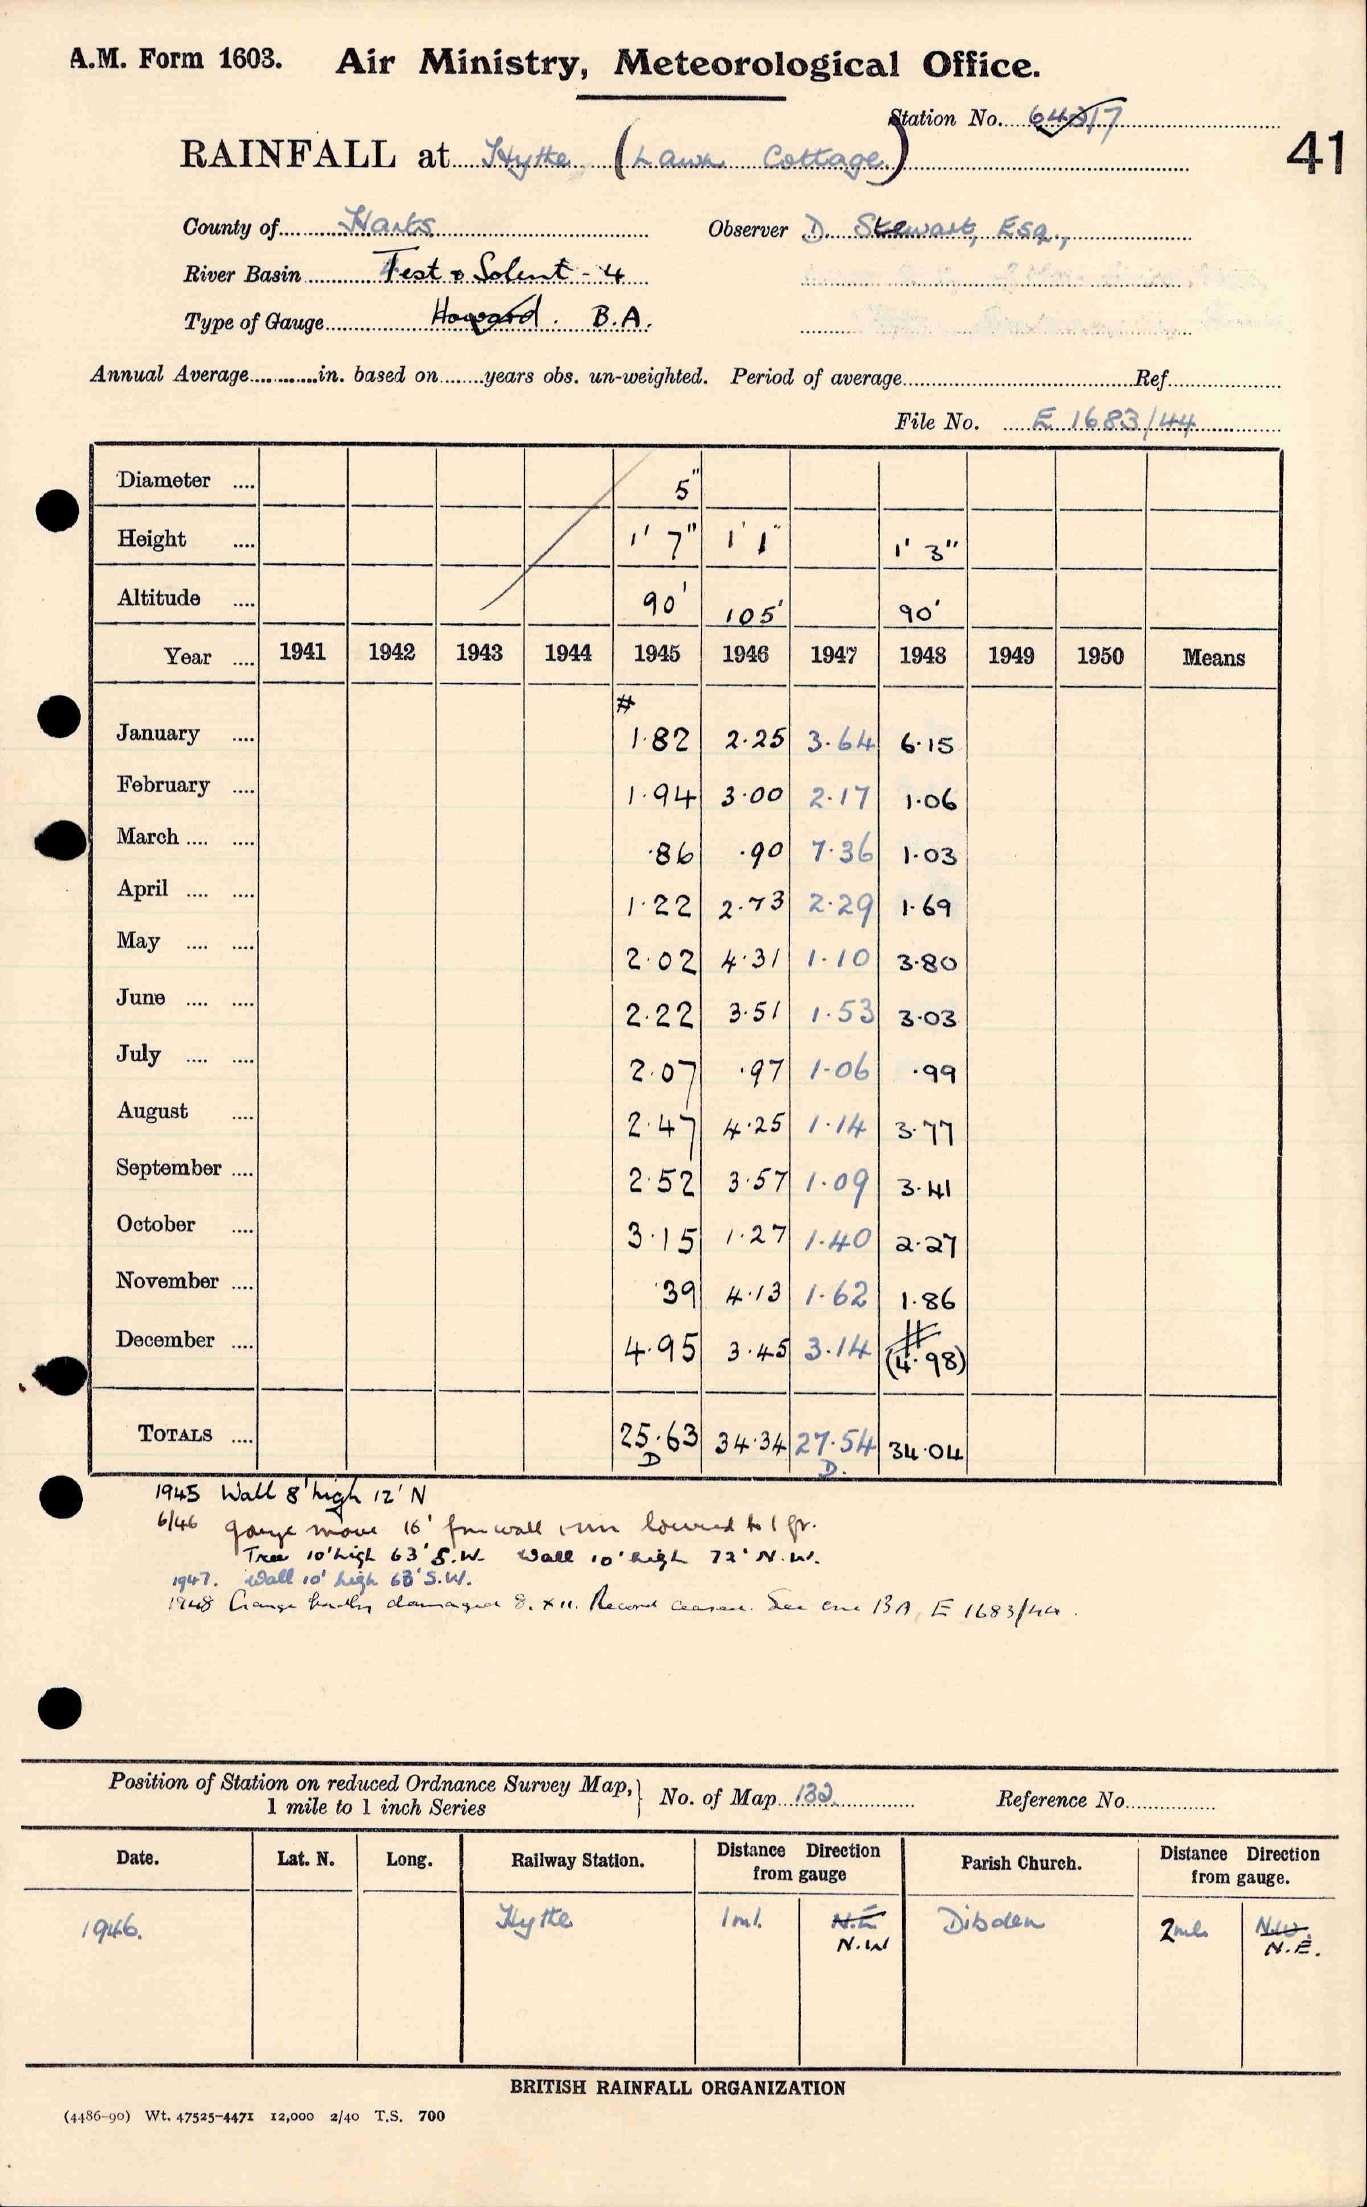 A.M. Form 1603. Air Ministry, Meteorological Office.
Station No. 643/7
41
RAINFALL at Hythe (Lawn Cottage)
County of Hants Observer D. Stewart, Esq.,
River Basin Test & Solent - 4
Type of Gauge Howard. B.A.
Annual Average in. based on years obs. un-weighted. Period of average Ref
File No. E 1683/44
Diameter .... 5"
Height .... 1' 7" 1' 1" 1' 3"
Altitude .... 90' 105' 90'
Year .... 1941 1942 1943 1944 1945 1946 1947 1948 1949 1950 Means
#
January .... 1.82 2.25 3.64 6.15
February .... 1.94 3.00 2.17 1.06
March .... .... .86 .90 7.36 1.03
April .... .... 1.22 2.73 2.29 1.69
May .... .... 2.02 4.31 1.10 3.80
June .... .... 2.22 3.51 1.53 3.03
July .... .... 2.07 .97 1.06 .99
August .... 2.47 4.25 1.14 3.77
September .... 2.52 3.57 1.09 3.41
October .... 3.15 1.27 1.40 2.27
November .... .39 4.13 1.62 1.86
December .... 4.95 3.45 3.14 # (4.98)
TOTALS .... 25.63 34.34 27.54 34.04
D D.
1945 Wall 8' high 12' N
6/46 gauge move 16' from wall rim lowered to 1 ft.
Tree 10' high 63' S.W. Wall 10' high 72' N.W.
1947. Wall 10' high 63' S.W.
1948 Gauge badly damaged 8.XII. Record ceased. See BA, E 1683/44.
Position of Station on reduced Ordnance Survey Map, } No. of Map 132 Reference No.
1 mile to 1 inch Series
Date. Lat. N. Long. Railway Station. Distance Direction from gauge Parish Church. Distance Direction from gauge.
1946. Hythe 1 ml. N.E. Dibden 2 mls N.W.
N.W N.E.
BRITISH RAINFALL ORGANIZATION
(4486-90) Wt. 47525-4471 12,000 2/40 T.S. 700